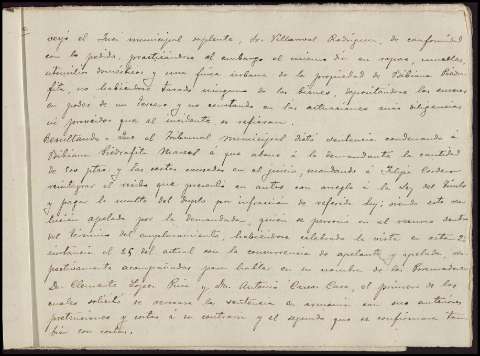 verjó el Juez municipal suplente, Sr. Villarroel Rodríguez, de conformidad
con lo pedido, practicándose el embargo el mismo dia en ropas, muebles,
utensilios domésticos y una finca urbana de la propiedad de Bibiana Piedra-
fita, no habiéndose tasado ninguno de los bienes, depositandose los muebles
en poder de un tercero, y no constando en las actuaciones mas diligencias
ni proveidos que al incidente se refieran.
Resultando: Que el Tribunal municipal dictó sentencia condenando á
Bibiana Piedrafita Marcos á que abone á la demandante la cantidad
de 500 ptas, y las costas causadas en el juicio, mandando á Felipe Cordero
reintegrar el recibo que presentó en autos con arreglo á la ley del timbre
y pagar la multa del duplo por infracción de referida ley; siendo esta reso-
lución apelada por la demandada, quien se personó en el recurso dentro
del término del emplazamiento, habiendose celebrado la vista en esta 2ª
instancia el 25 del actual con la concurrencia de apelante y apelada, res-
pectivamente acompañadas para hablar en su nombre de los Procuradores
D. Clemente López Ruiz y D. Antonio Caso, el primero de los
cuales solicitó se revocara la sentencia en armonia con sus anteriores
pretensiones y costas á su contraria y el segundo que se confirmara tam-
bién con costas.